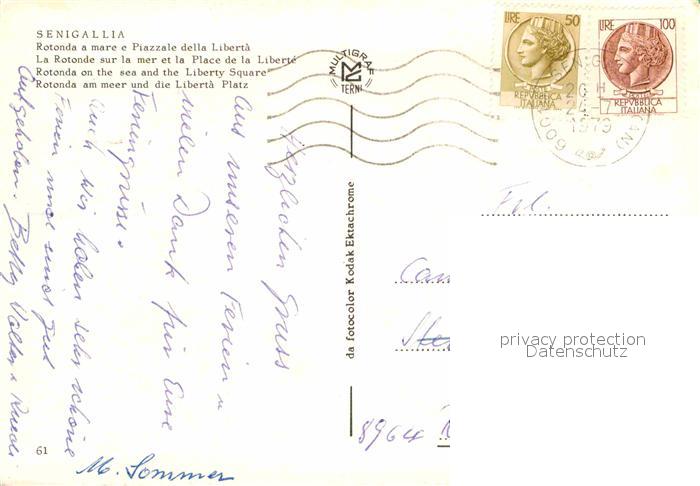 SENIGALLIA
Rotonda a mare e Piazzale della Libertà
La Rotonde sur la mer et la Place de la Liberté
Rotonda on the sea and the Liberty Square
Rotonda am meer und die Libertà Platz
MULTIGRAF
TERNI
LIRE 50
REPVBBLICA
ITALIANA
LIRE 100
REPVBBLICA
ITALIANA
1979
60019
Herzlichen Gruss
aus unseren Ferien u
vielen Dank für Eure
Feriengrüsse.
Auch wir haben sehr schöne
Ferien und sind gut
aufgehoben. Betty Walter & Ruedi
M. Sommer
da fotocolor Kodak Ektachrome
Frl.
8964
privacy protection
Datenschutz
61